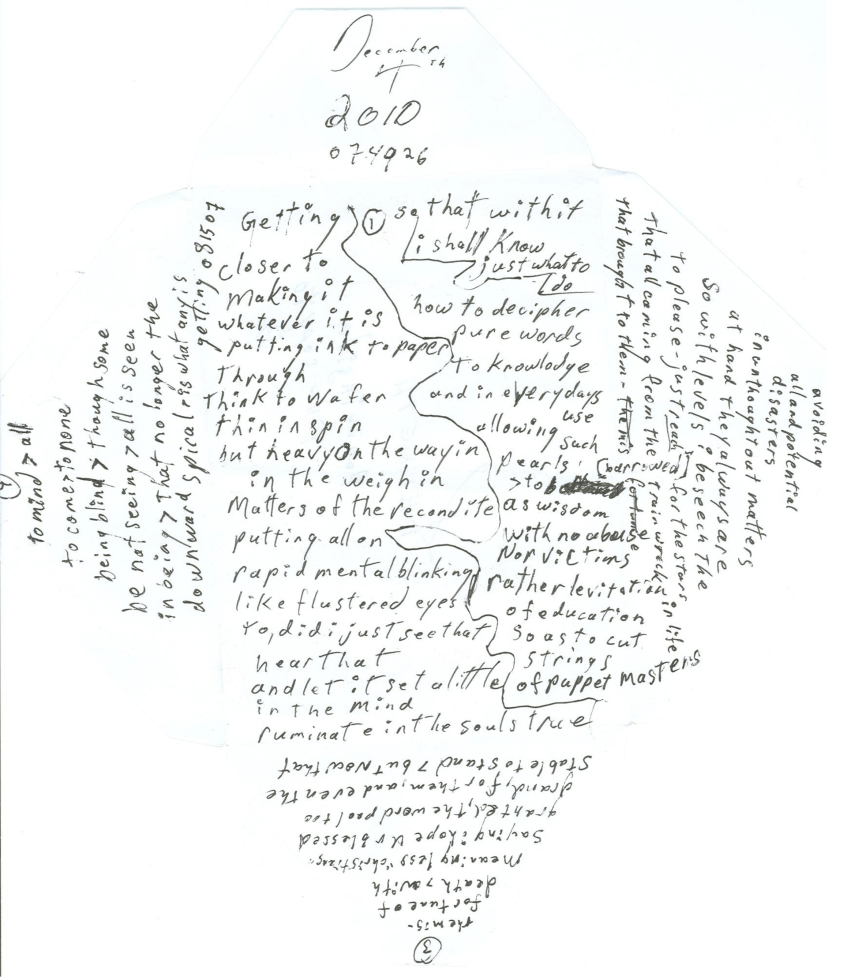 December
4th
2010
074926
Getting
closer to
making it
whatever it is
putting ink to paper
Through
Think to wafer
thin in spin
but heavy on the way in
in the weigh in
Matters of the recondite
putting all on
rapid mental blinking
like flustered eyes
Yo, did i just see that
hear that
and let it set a little
in the mind
ruminate in the souls true
① so that with it
i shall know
just what to
do
how to decipher
pure words
to knowlodge
and in everydays
use
allowing such
pearls
> to (borrowed)
as wisdom
with no abuse
Nor victims
rather levitation
of education
so as to cut
strings
of puppet masters
avoiding
all and potential
disasters
in unthought out matters
at hand they always are
So with levels i beseech the
to please - just reach for the stars
That all coming from the train wreck in life
that brought to them - the mis fortune
③
the mis-
fortune of
death > with
meaning less
Saying i hope Ur blessed
granted, the word pool too
grand, for them, and even the
stable to stand > but now that
to mind > all
to come to none
being blind > though some
be not seeing > all is seen
in being > That no longer the
downward spiral ris what any is
getting 081507